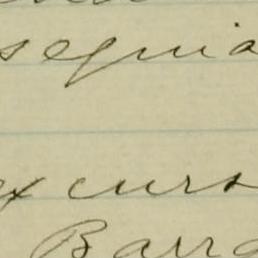 seguia
excurs
Barra